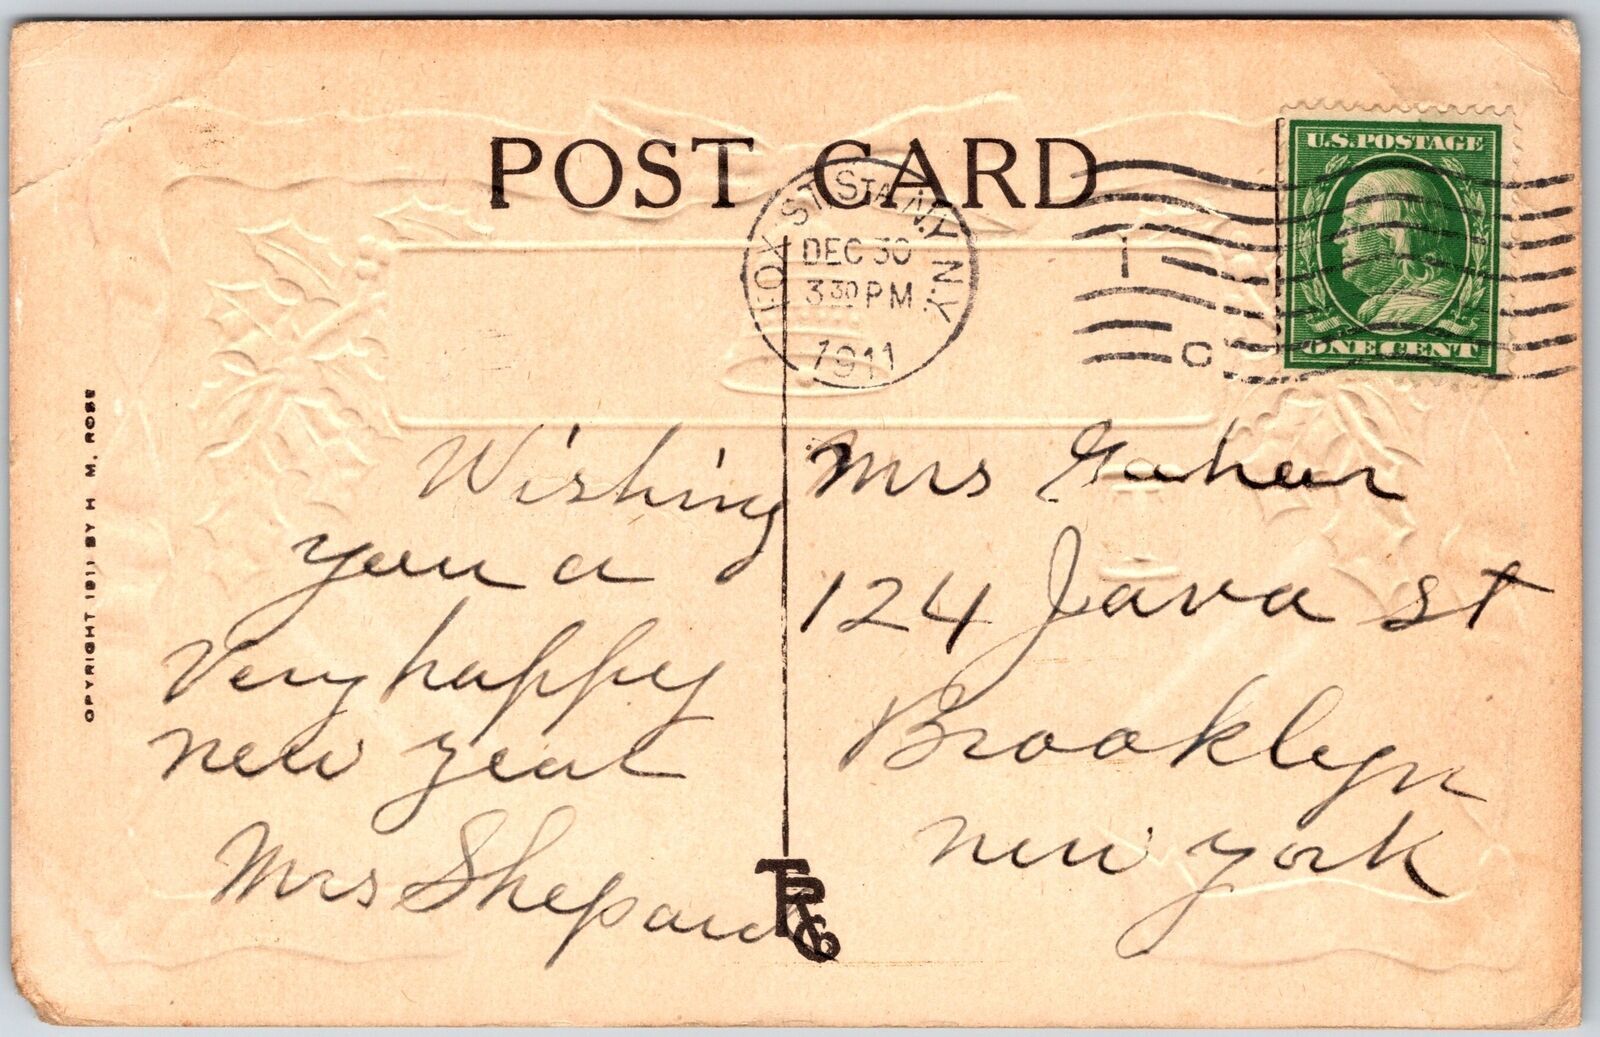 POST CARD
FOX ST. STA. N.Y. N.Y.
DEC 30
3 30 PM
1911
1
C
U.S. POSTAGE
ONE CENT
OPYRIGHT 1911 BY H M. ROSE
Wishing
you a
Very happy
new year
Mrs Shepard
Mrs Gaher
124 Java st
Brooklyn
new york
TRCo